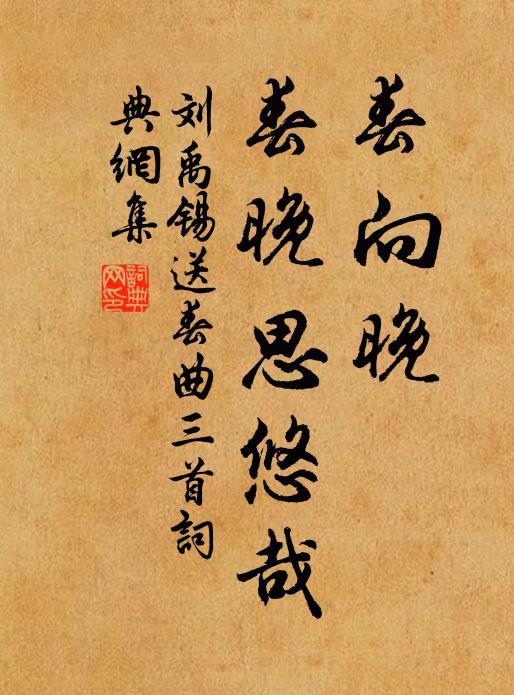 春向晚
春晚思悠哉
刘禹锡送春曲三首詞
典網集
詞典
网印